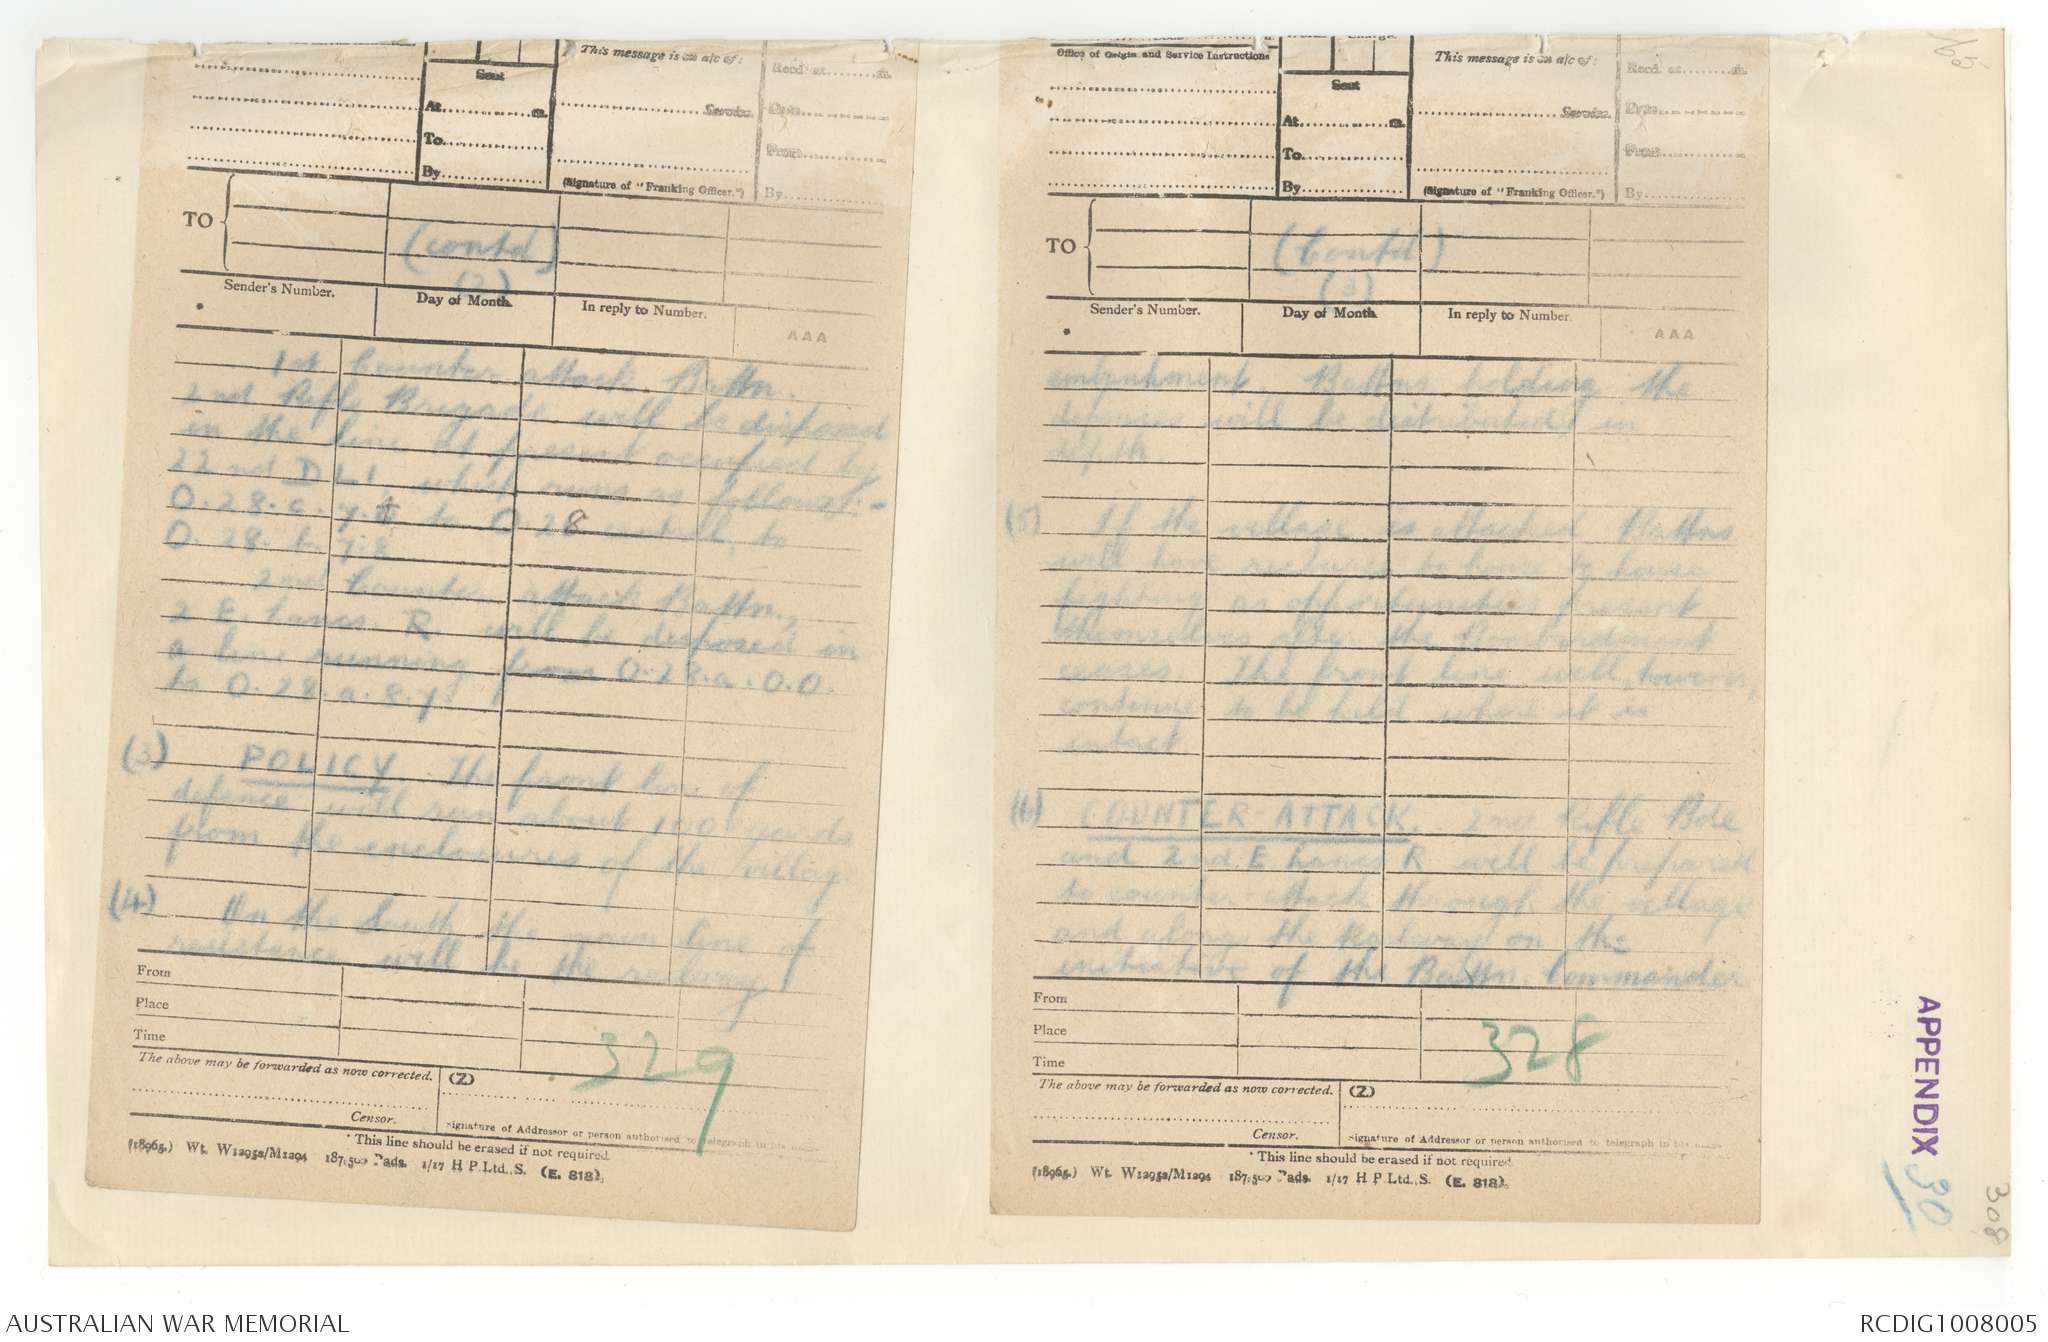 This message is on a/c of:
Recd. at.........m.
Sent
At..............m.
Service.
Date
To
From
By
(Signature of "Franking Officer.")
By
TO
(contd)
(2)
Sender's Number.
Day of Month.
In reply to Number.
AAA
1st Counter attack Battn.
2nd Rifle Brigade will be disposed
in the line at present occupied by
22nd D.L.I. which runs as follows:-
O.28.c.7.7 to O 28 central, to
O.28.b.7.8
2nd Counter attack Battn.,
2 E. Lancs R will be disposed in
a line running from O.28.a.0.0.
to O.28.a.8.7.
(3) POLICY. The front line of
defence will run about 100 yards
from the enclosures of the village
(4) On the South the main line of
resistance will be the railway
From
Place
Time
The above may be forwarded as now corrected.
(Z)
Censor.
Signature of Addressor or person authorised to telegraph in his name
* This line should be erased if not required.
(18965.) Wt. W12952/M1294 187,500 Pads. 1/17 H P.Ltd., S. (E. 818).
329
Office of Origin and Service Instructions
Words
Charge.
This message is on a/c of:
Recd. at.........m.
Sent
At..............m.
Service.
Date
To
From
By
(Signature of "Franking Officer.")
By
TO
(Contd)
(3)
Sender's Number.
Day of Month.
In reply to Number.
AAA
embankment. Battns holding the
defences will be distributed in
depth
(5) If the village is attacked Battns
will have recourse to house to house
fighting as opportunities present
themselves after the Bombardment
ceases. The front line will, however,
continue to be held where it is
intact
(6) COUNTER-ATTACK. 2nd Rifle Bde
and 2nd E Lancs R will be prepared
to counter-attack through the village
and along the Railway on the
initiative of the Battn. Commander
From
Place
Time
The above may be forwarded as now corrected.
(Z)
Censor.
Signature of Addressor or person authorised to telegraph in his name
* This line should be erased if not required.
(18965.) Wt. W12952/M1294 187,500 Pads. 1/17 H P.Ltd., S. (E. 818).
328
APPENDIX 30
308
AUSTRALIAN WAR MEMORIAL
RCDIG1008005